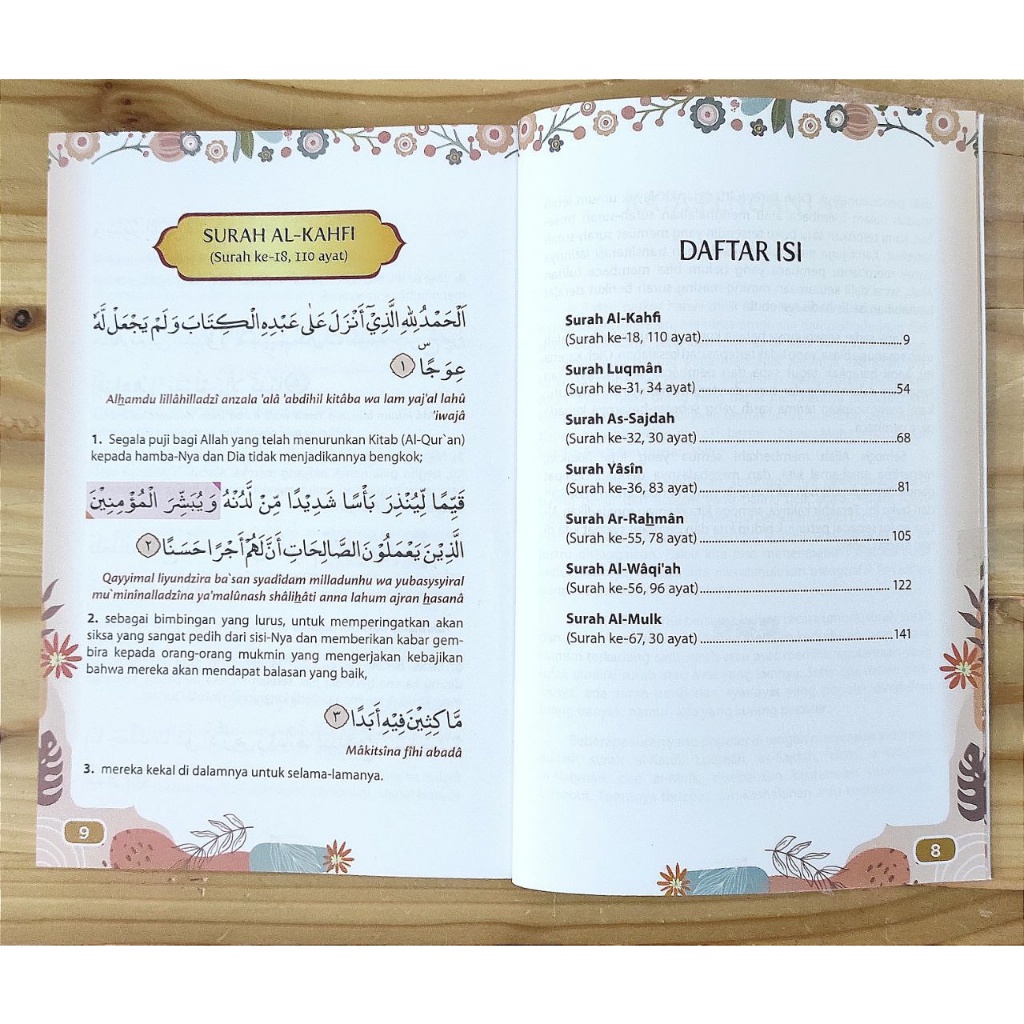 DAFTAR ISI
Surah Al-Kahfi
(Surah ke-18, 110 ayat)..................................................9
Surah Luqmân
(Surah ke-31, 34 ayat)..................................................54
Surah As-Sajdah
(Surah ke-32, 30 ayat)..................................................68
Surah Yâsîn
(Surah ke-36, 83 ayat)..................................................81
Surah Ar-Raẖmân
(Surah ke-55, 78 ayat)..................................................105
Surah Al-Wâqi'ah
(Surah ke-56, 96 ayat)..................................................122
Surah Al-Mulk
(Surah ke-67, 30 ayat)..................................................141
8
SURAH AL-KAHFI
(Surah ke-18, 110 ayat)
اَلْحَمْدُ لِلّٰهِ الَّذِيْٓ أَنْزَلَ عَلٰى عَبْدِهِ الْكِتَابَ وَلَمْ يَجْعَلْ لَّهٗ
عِوَجًا ۜ ١
Alẖamdu lillâhilladzî anzala 'alâ 'abdihil kitâba wa lam yaj'al lahû
'iwajâ
1. Segala puji bagi Allah yang telah menurunkan Kitab (Al-Qur`an)
kepada hamba-Nya dan Dia tidak menjadikannya bengkok;
قَيِّمًا لِّيُنْذِرَ بَأْسًا شَدِيْدًا مِّنْ لَّدُنْهُ وَيُبَشِّرَ الْمُؤْمِنِيْنَ
الَّذِيْنَ يَعْمَلُوْنَ الصَّالِحَاتِ أَنَّ لَهُمْ أَجْرًا حَسَنًا ٢
Qayyimal liyundzira ba`san syadîdam milladunhu wa yubasysyiral
mu`minînalladzîna ya'malûnash shâliẖâti anna lahum ajran ẖasanâ
2. sebagai bimbingan yang lurus, untuk memperingatkan akan
siksa yang sangat pedih dari sisi-Nya dan memberikan kabar gem-
bira kepada orang-orang mukmin yang mengerjakan kebajikan
bahwa mereka akan mendapat balasan yang baik,
مَّاكِثِيْنَ فِيْهِ أَبَدًا ٣
Mâkitsîna fîhi abadâ
3. mereka kekal di dalamnya untuk selama-lamanya.
9